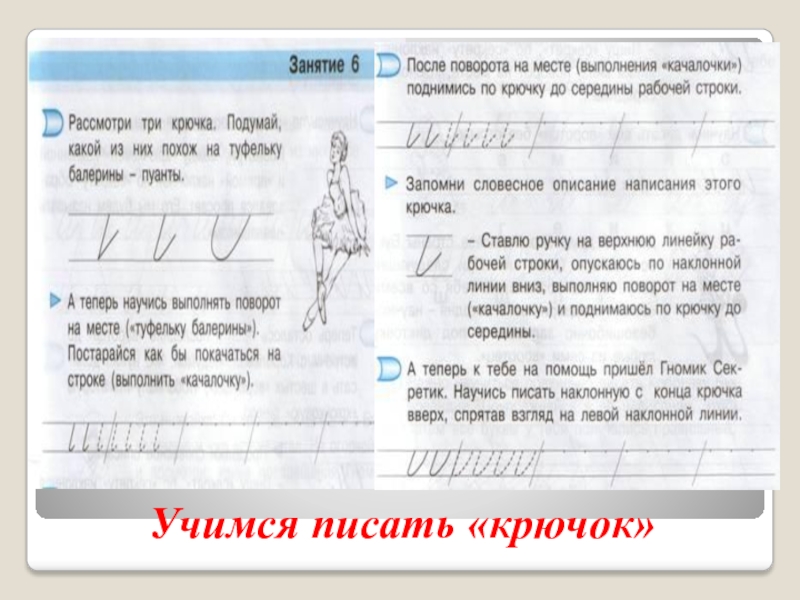 Занятие 6
Рассмотри три крючка. Подумай,
какой из них похож на туфельку
балерины – пуанты.
А теперь научись выполнять поворот
на месте («туфельку балерины»).
Постарайся как бы покачаться на
строке (выполнить «качалочку»).
После поворота на месте (выполнения «качалочки»)
поднимись по крючку до середины рабочей строки.
Запомни словесное описание написания этого
крючка.
– Ставлю ручку на верхнюю линейку ра-
бочей строки, опускаюсь по наклонной
линии вниз, выполняю поворот на месте
(«качалочку») и поднимаюсь по крючку до
середины.
А теперь к тебе на помощь пришёл Гномик Сек-
ретик. Научись писать наклонную с конца крючка
вверх, спрятав взгляд на левой наклонной линии.
Учимся писать «крючок»